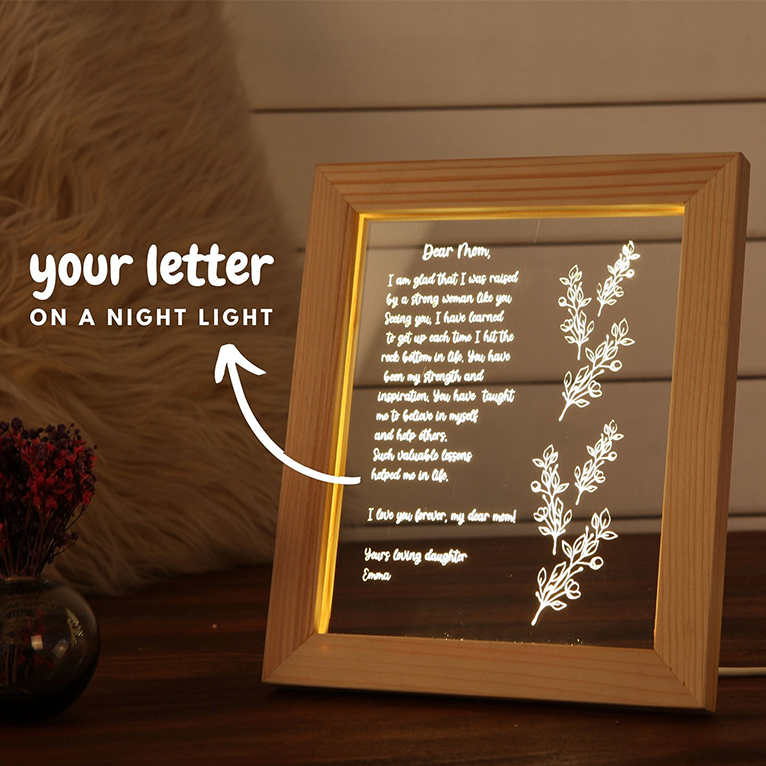 your letter
ON A NIGHT LIGHT
Dear Mom,
I am glad that I was raised
by a strong woman like you
Seeing you, I have learned
to get up each time I hit the
rock bottom in life. You have
been my strength and
inspiration. You have taught
me to believe in myself
and help others.
Such valuable lessons
helped me in life.
I love you forever, my dear mom!
Yours loving daughter
Emma